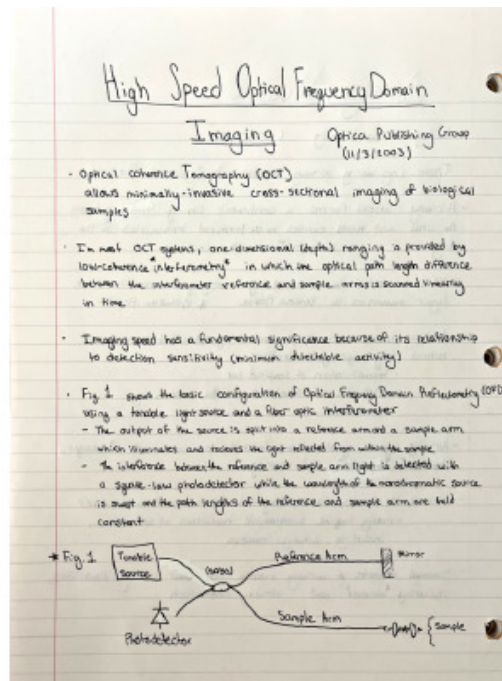 High Speed Optical Frequency Domain
Imaging Optica Publishing Group
(11/3/2003)
- Optical Coherence Tomography (OCT)
allows minimally-invasive cross-sectional imaging of biological
samples
· In most OCT systems, one-dimensional (depth) ranging is provided by
low-coherence *interferometry* in which the optical path length difference
between the interferometer reference and sample arms is scanned linearing
in time
· Imaging speed has a fundamental significance because of its relationship
to detection sensitivity (minimum detectable activity)
· Fig 1 shows the basic configuration of Optical Frequency Domain Reflectometry (OFD
using a tunable light source and a fiber optic interferometer
- The output of the source is split into a reference arm and a sample arm
which illuminates and recieves the light reflected from within the sample
- The interference between the reference and sample arm light is detected with
a photodetector while the wavelength of the monochromatic source
is swept and the path lengths of the reference and sample arm are held
constant
* Fig. 1 Tunable Source (50/50) Reference Arm Mirror
Photodetector Sample Arm Sample